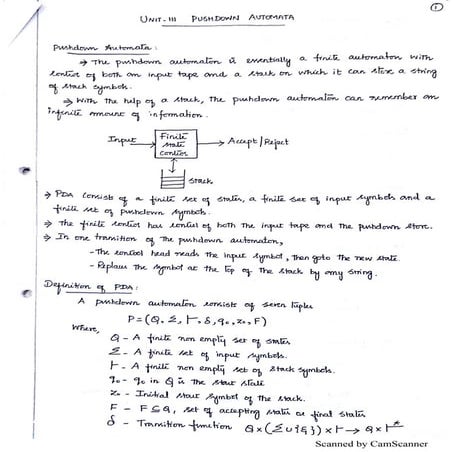 1
UNIT-III PUSHDOWN AUTOMATA
Pushdown Automata:
→ The pushdown automaton is essentially a finite automaton with
control of both an input tape and a stack on which it can store a string
of stack symbols.
→ With the help of a stack, the pushdown automaton can remember an
infinite amount of information.
Input → Finite state control → Accept/Reject
Stack
→ PDA consists of a finite set of states, a finite set of input symbols and a
finite set of pushdown symbols.
→ The finite control has control of both the input tape and the pushdown store.
→ In one transition of the pushdown automaton,
- The control head reads the input symbol, then goto the new state.
- Replaces the symbol at the top of the stack by any string.
Definition of PDA:
A pushdown automaton consists of seven tuples
P = (Q, Σ, Γ, δ, q₀, z₀, F)
Where,
Q - A finite non empty set of states
Σ - A finite set of input symbols.
Γ - A finite non empty set of stack symbols.
q₀ - q₀ in Q is the start state
z₀ - Initial start symbol of the stack.
F - F ⊆ Q, set of accepting states or final states
δ - Transition function Q × (Σ ∪ {ε}) × Γ → Q × Γ*
Scanned by CamScanner